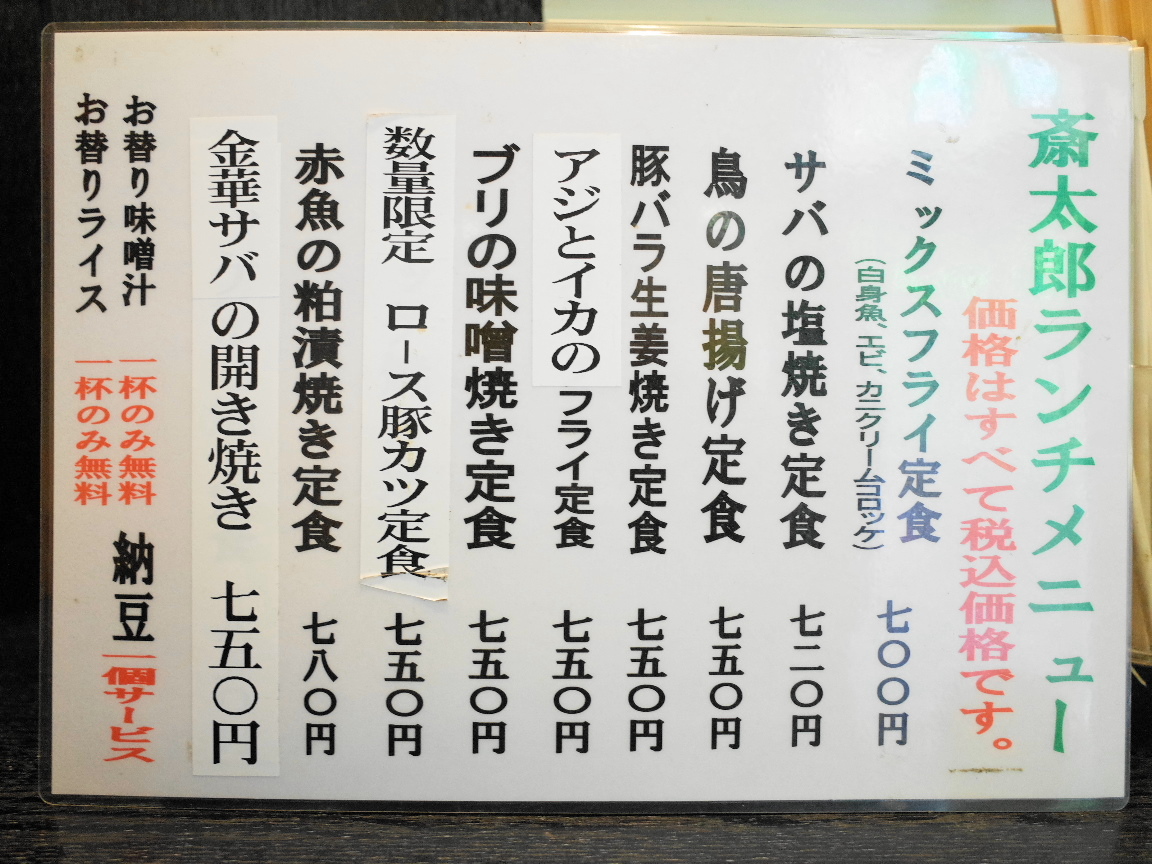 斎太郎ランチメニュー
価格はすべて税込価格です。
ミックスフライ定食 七〇〇円
(白身魚、エビ、カニクリームコロッケ)
サバの塩焼き定食 七二〇円
鳥の唐揚げ定食 七五〇円
豚バラ生姜焼き定食 七五〇円
アジとイカのフライ定食 七五〇円
ブリの味噌焼き定食 七五〇円
数量限定 ロース豚カツ定食 七五〇円
赤魚の粕漬焼き定食 七八〇円
金華サバの開き焼き 七五〇円
お替り味噌汁 一杯のみ無料 納豆一個サービス
お替りライス 一杯のみ無料